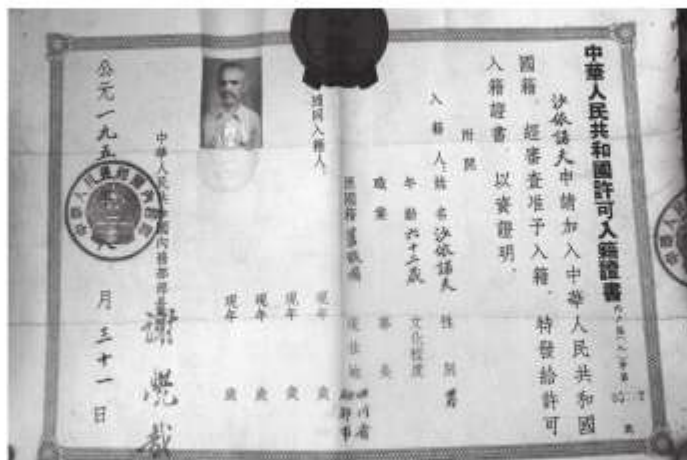 中華人民共和國許可入籍證書
沙依諾夫申請加入中華人民共和國
國籍，經審查准予入籍，特發給許可
入籍證書，以資證明。
附照
入籍人：姓名沙依諾夫 性別男
年齡六十二歲 文化程度
職業 專長
原國籍舊俄國 現住地四川省成都市
隨同入籍人：
現年 歲
現年 歲
現年 歲
現年 歲
中華人民共和國內務部部長
謝覺哉
公元一九五 年 八月三十一日